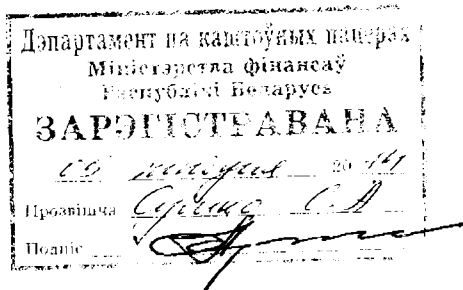 Дэпартамент па каштоўных паперах
Міністэрства фінансаў
Рэспублікі Беларусь
ЗАРЭГІСТРАВАНА
06 20 14
Прозвішча С. А.
Подпіс